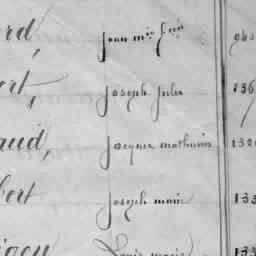 ard, jean mie frois 960
ert, joseph jules 136
aud, jacques mathurin 132
bert joseph marie 133
Louis marie 133